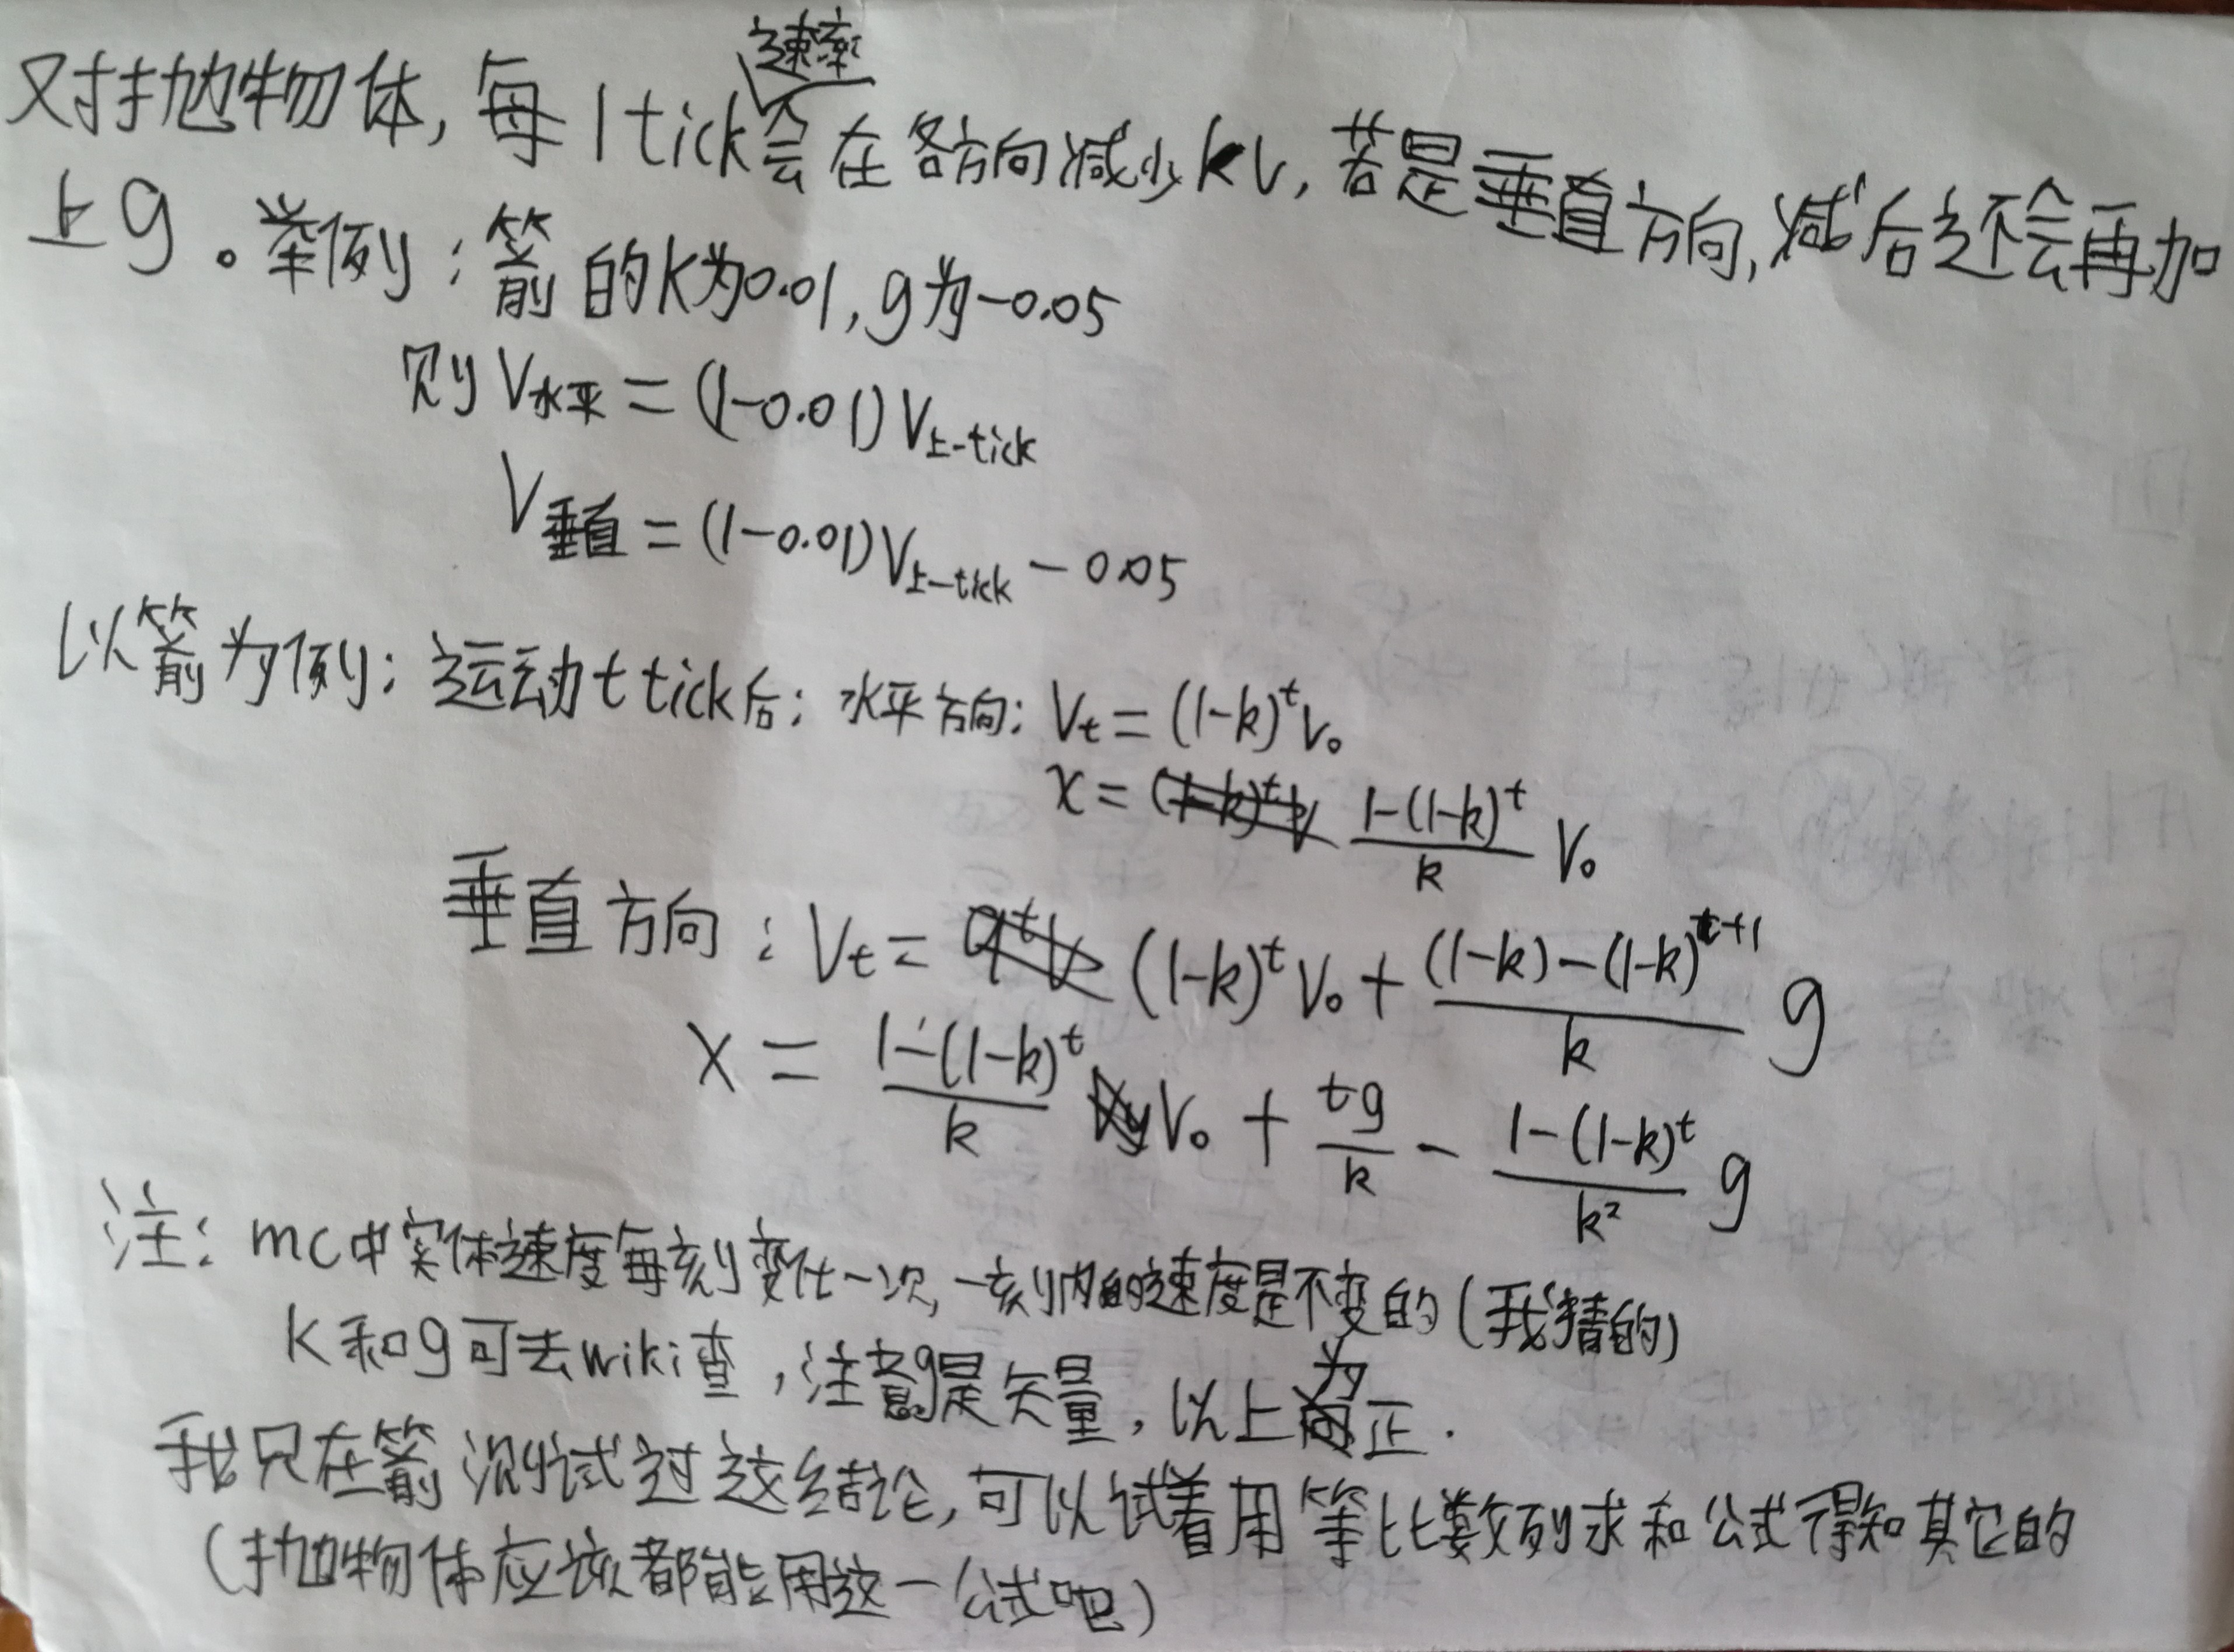 对抛物体，每1tick速率会在各方向减少kv，若是垂直方向，减后还会再加
上g。举例：箭的k为0.01，g为-0.05
则V水平=(1-0.01)V上一tick
V垂直=(1-0.01)V上一tick-0.05
以箭为例：运动t tick后：水平方向：Vt=(1-k)^t V₀
x= \frac{1-(1-k)^t}{k} V₀
垂直方向：Vt= (1-k)^t V₀+\frac{(1-k)-(1-k)^{t+1}}{k} g
X=\frac{1-(1-k)^t}{k} V₀+\frac{tg}{k}-\frac{1-(1-k)^t}{k²} g
注：mc中实体速度每刻变化一次，一刻内的速度是不变的(我猜的)
k和g可去wiki查，注意g是矢量，以上为正.
我只在箭测试过这结论，可以试着用等比数列求和公式得知其它的
(抛物体应该都能用这一公式吧)